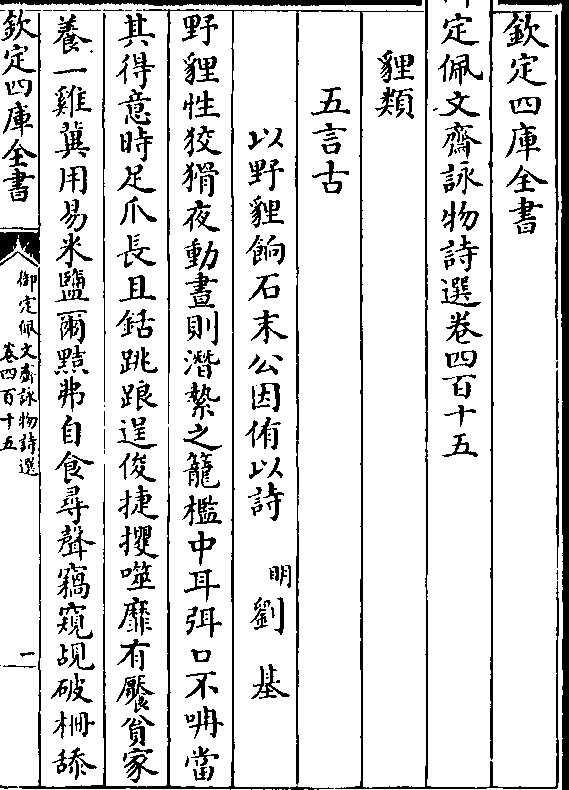 欽定四庫全書
定佩文齋詠物詩選卷四百十五
貍類
五言古
以野貍餉石末公因侑以詩 明 劉基
野貍性狡猾夜動晝則潛縶之籠檻中耳弭口不呥當
其得意時足爪長且銛跳踉逞俊捷攫噬靡有饜貧家
養一雞冀用易米鹽爾黠弗自食尋聲竊窺覘破柵舔
欽定四庫全書
御定佩文齋詠物詩選
卷四百十五
一